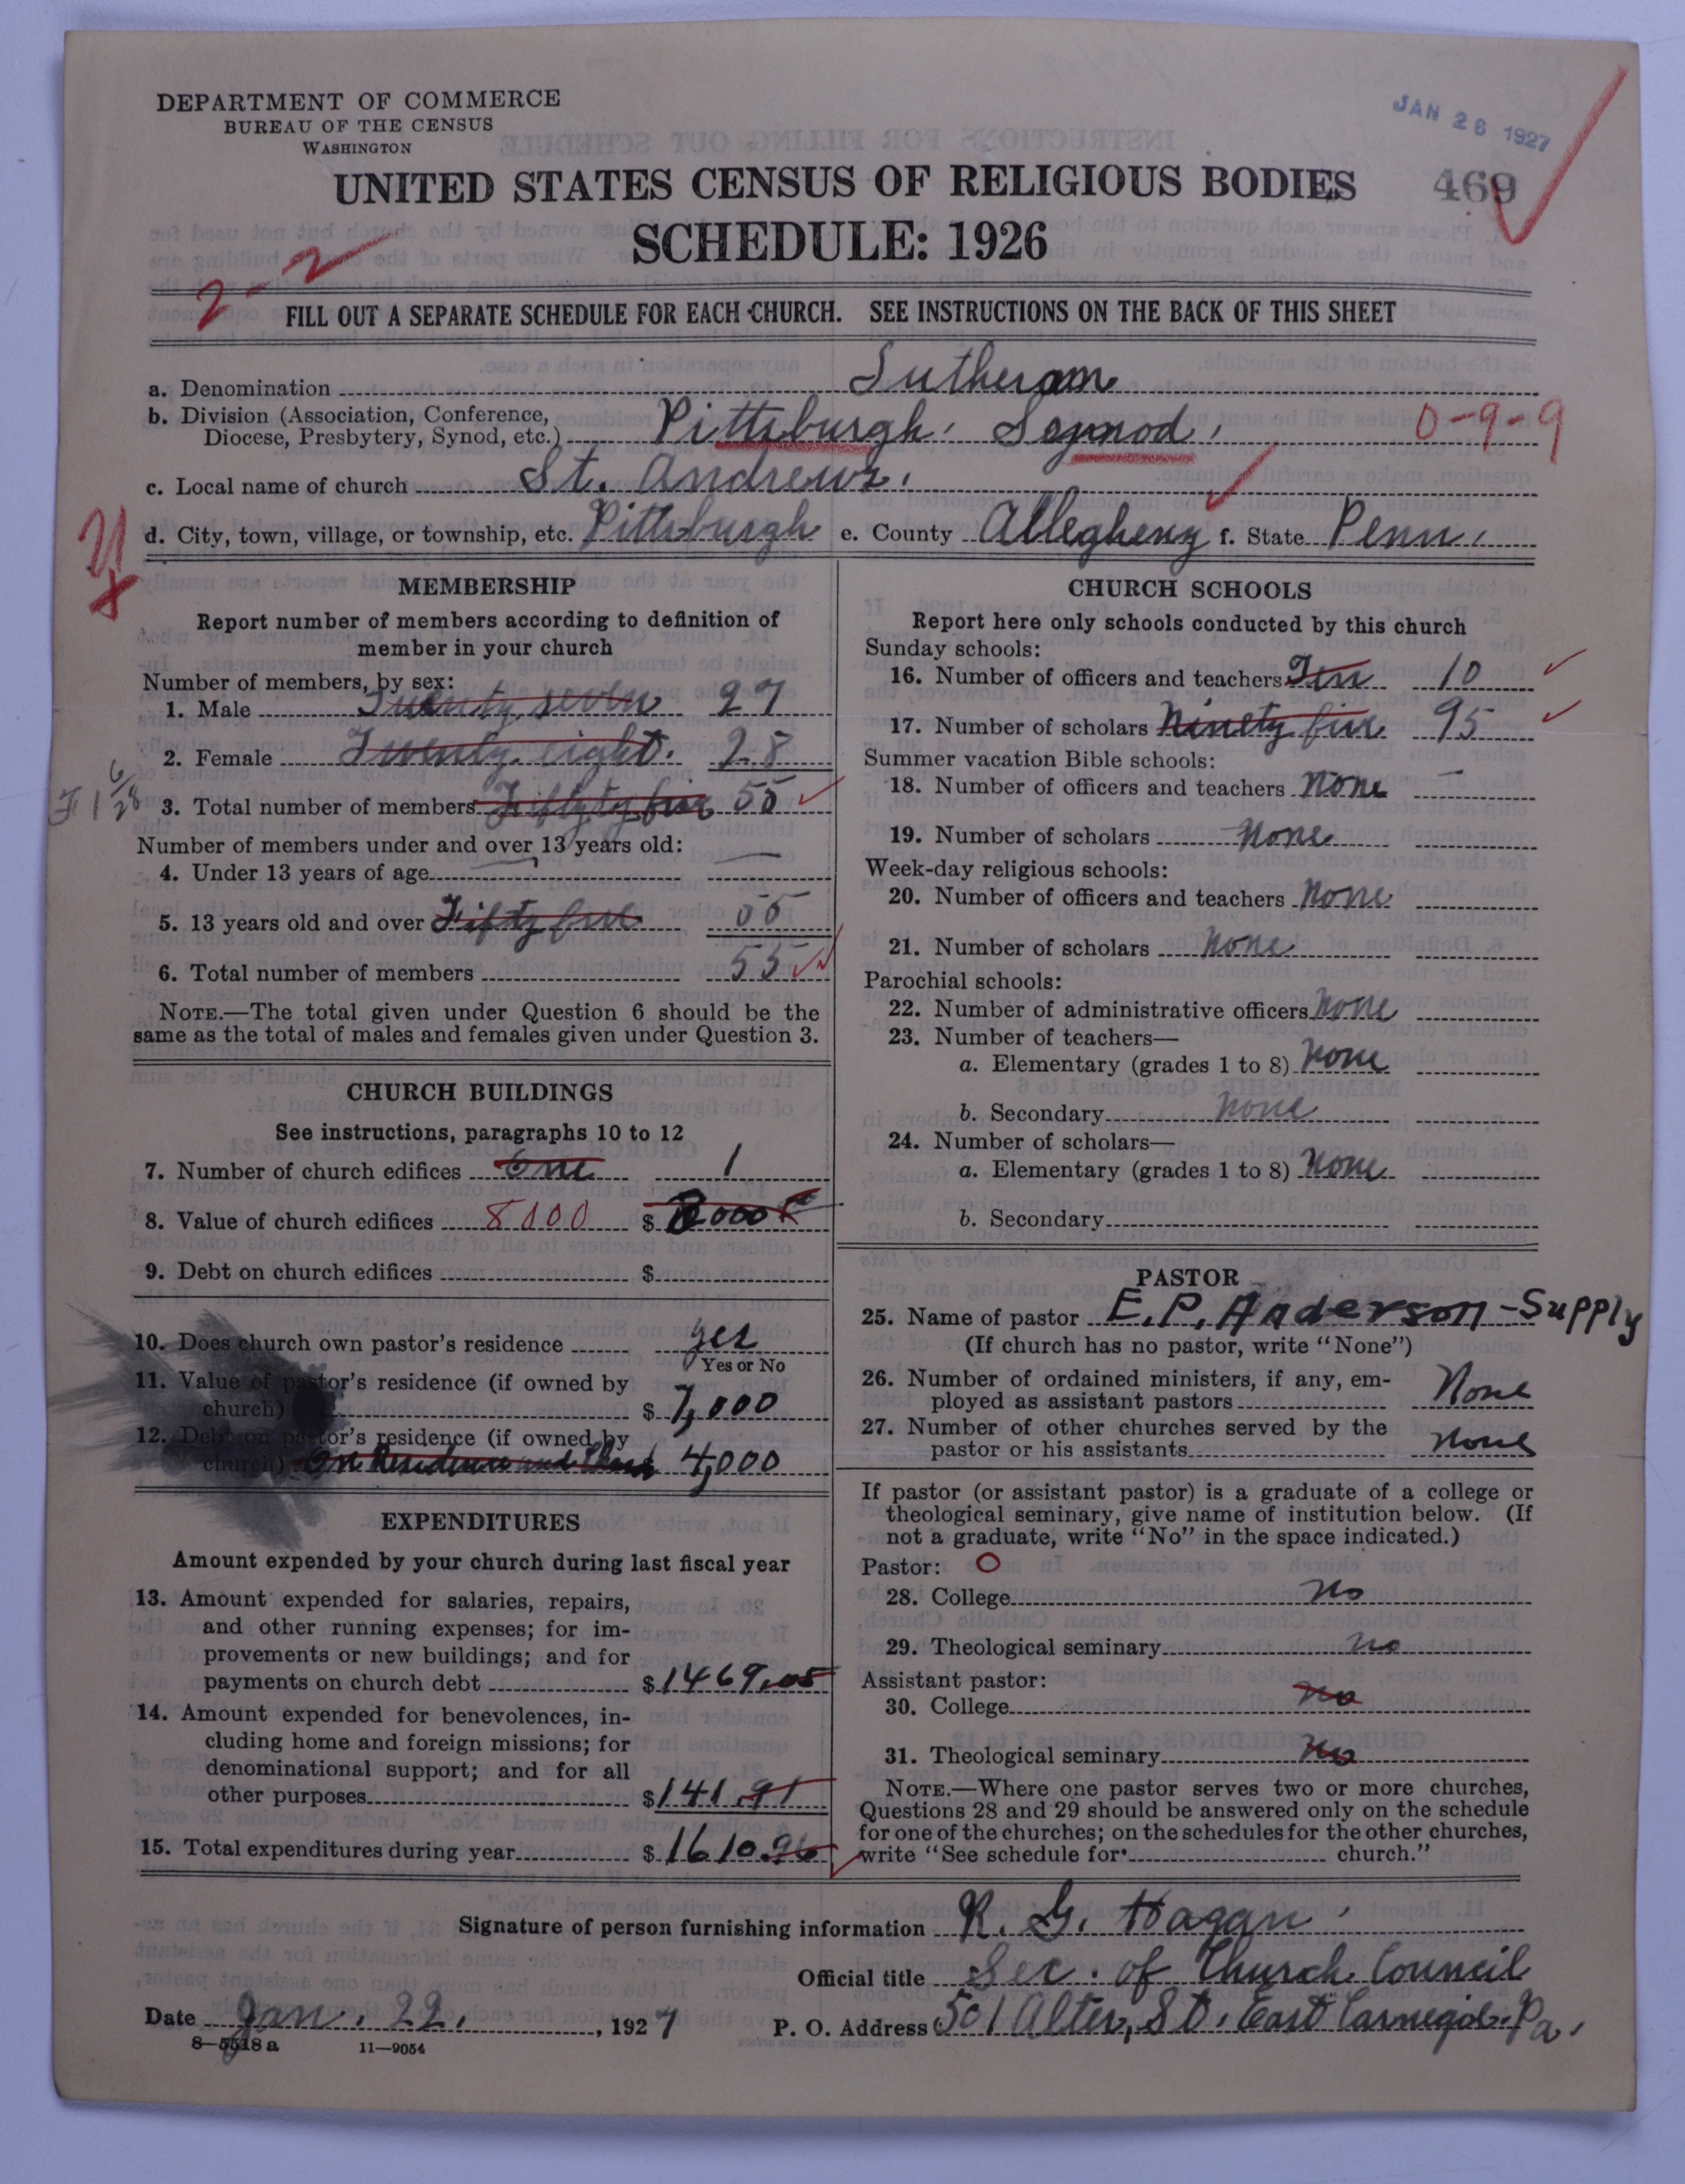 DEPARTMENT OF COMMERCE
BUREAU OF THE CENSUS
WASHINGTON
JAN 26 1927
UNITED STATES CENSUS OF RELIGIOUS BODIES
469
SCHEDULE: 1926
2-2
FILL OUT A SEPARATE SCHEDULE FOR EACH CHURCH. SEE INSTRUCTIONS ON THE BACK OF THIS SHEET
a. Denomination Lutheran
b. Division (Association, Conference, Diocese, Presbytery, Synod, etc.) Pittsburgh Synod, 0-9-9
c. Local name of church St. Andrews.
d. City, town, village, or township, etc. Pittsburgh e. County Allegheny f. State Penn.
MEMBERSHIP
Report number of members according to definition of
member in your church
Number of members, by sex:
1. Male Twenty seven 27
2. Female Twenty eight. 28
3. Total number of members Fiftyty five 55
Number of members under and over 13 years old:
4. Under 13 years of age —
5. 13 years old and over Fifty five 55
6. Total number of members 55
NOTE.—The total given under Question 6 should be the
same as the total of males and females given under Question 3.
CHURCH BUILDINGS
See instructions, paragraphs 10 to 12
7. Number of church edifices One 1
8. Value of church edifices 8000 $ 8000
9. Debt on church edifices $
10. Does church own pastor's residence yes
Yes or No
11. Value of pastor's residence (if owned by
church) $ 7,000
12. Debt on pastor's residence (if owned by
church) On Residence and Church 4,000
EXPENDITURES
Amount expended by your church during last fiscal year
13. Amount expended for salaries, repairs,
and other running expenses; for im-
provements or new buildings; and for
payments on church debt $ 1469.05
14. Amount expended for benevolences, in-
cluding home and foreign missions; for
denominational support; and for all
other purposes $ 141.91
15. Total expenditures during year $ 1610.96
CHURCH SCHOOLS
Report here only schools conducted by this church
Sunday schools:
16. Number of officers and teachers Ten 10
17. Number of scholars Ninety five 95
Summer vacation Bible schools:
18. Number of officers and teachers None —
19. Number of scholars None
Week-day religious schools:
20. Number of officers and teachers None
21. Number of scholars None
Parochial schools:
22. Number of administrative officers None
23. Number of teachers—
a. Elementary (grades 1 to 8) None
b. Secondary None
24. Number of scholars—
a. Elementary (grades 1 to 8) None
b. Secondary
PASTOR
25. Name of pastor E.P. Anderson-Supply
(If church has no pastor, write "None")
26. Number of ordained ministers, if any, em-
ployed as assistant pastors None
27. Number of other churches served by the
pastor or his assistants None
If pastor (or assistant pastor) is a graduate of a college or
theological seminary, give name of institution below. (If
not a graduate, write "No" in the space indicated.)
Pastor: O
28. College No
29. Theological seminary No
Assistant pastor:
30. College No
31. Theological seminary No
NOTE.—Where one pastor serves two or more churches,
Questions 28 and 29 should be answered only on the schedule
for one of the churches; on the schedules for the other churches,
write "See schedule for church."
Signature of person furnishing information R. G. Hagan
Official title Sec. of Church Council
Date Jan. 22. , 1927 P. O. Address 501 Alter, St. East Carnegie. Pa.
8—5518 a 11—9054